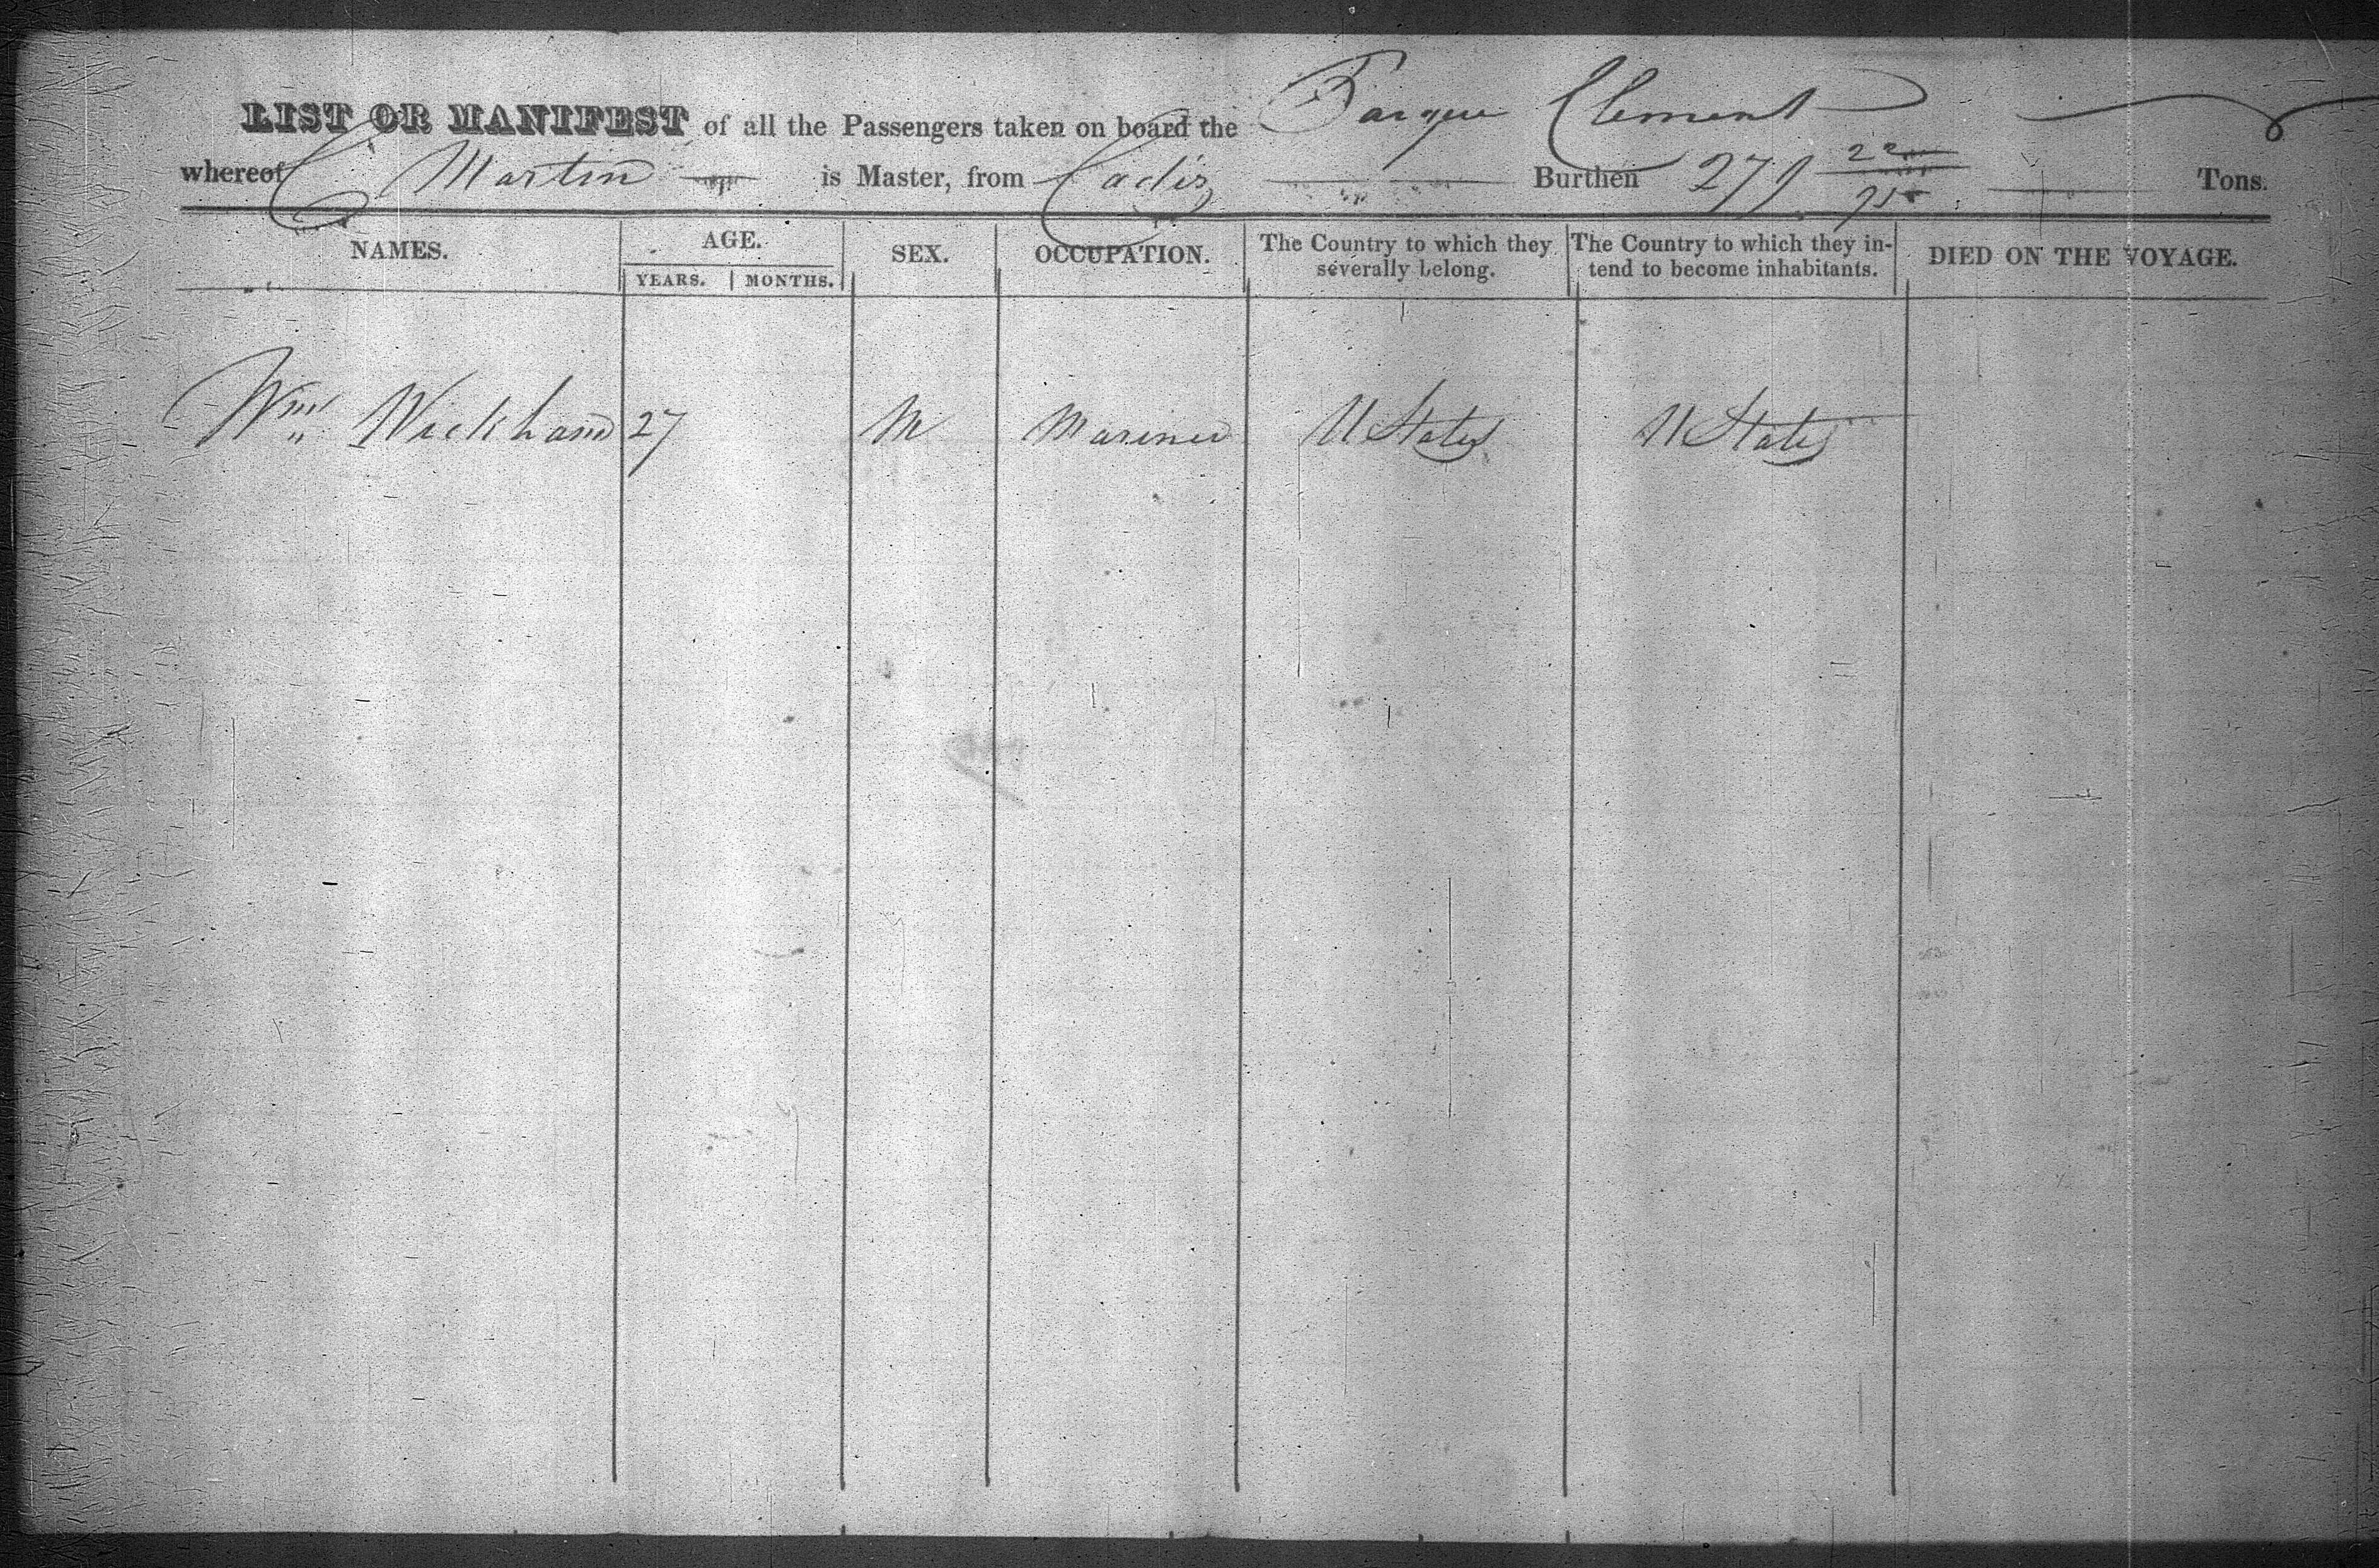 LIST OR MANIFEST of all the Passengers taken on board the Barque Clement
whereof C Martin is Master, from Cadiz Burthen 279 22/95 Tons.
NAMES. AGE. SEX. OCCUPATION. The Country to which they severally belong. The Country to which they intend to become inhabitants. DIED ON THE VOYAGE.
YEARS. MONTHS.
Wm Wickham 27 M Mariner U States U States